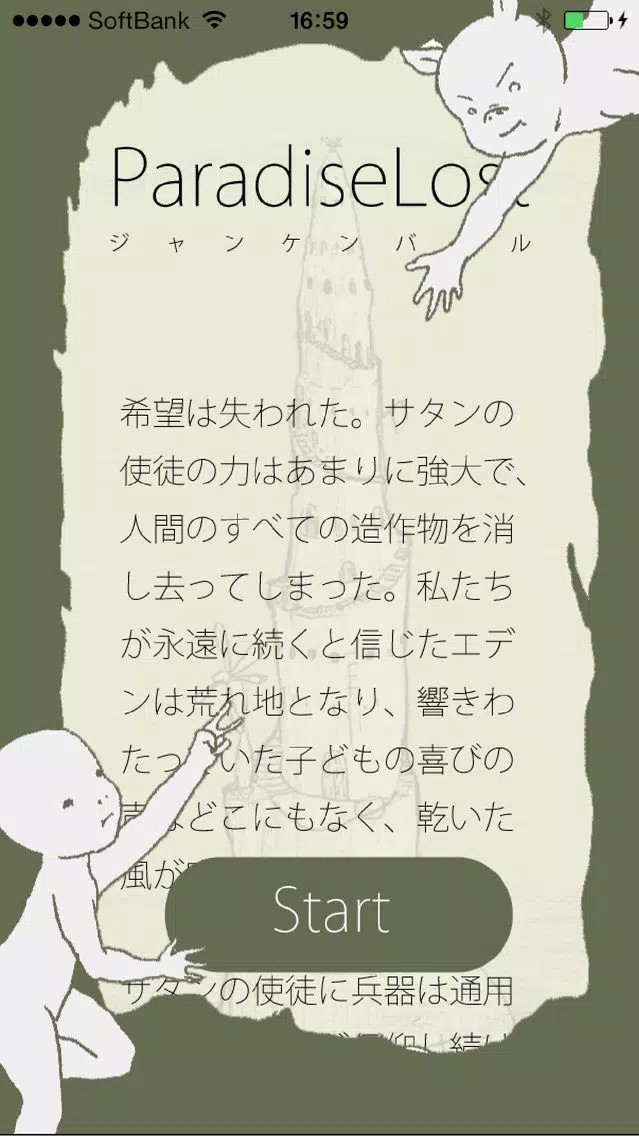 SoftBank 16:59
ParadiseLost
ジャンケンバ ル
希望は失われた。サタンの
使徒の力はあまりに強大で、
人間のすべての造作物を消
し去ってしまった。私たち
が永遠に続くと信じたエデ
ンは荒れ地となり、響きわ
たっていた子どもの喜びの
声はどこにもなく、乾いた
風が
Start
サタンの使徒に兵器は通用
信仰し続け